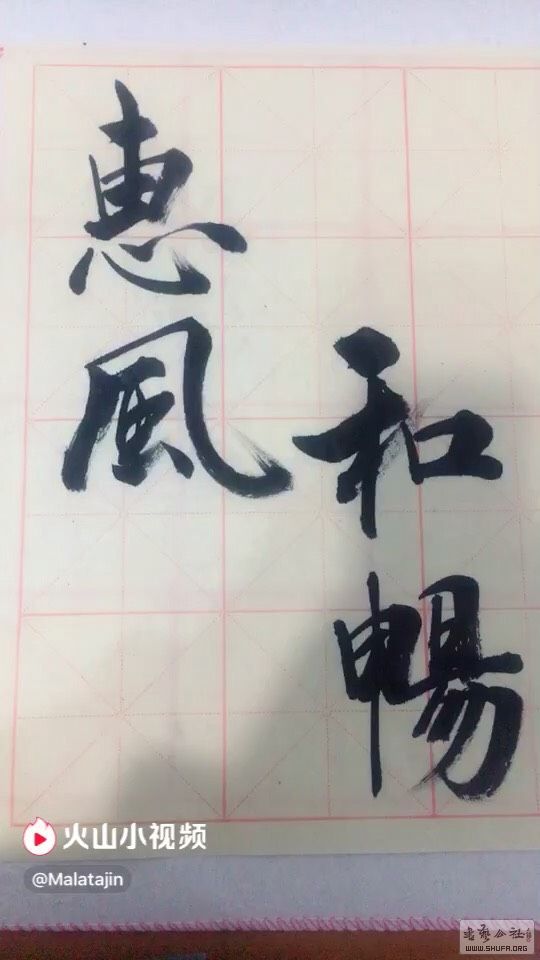 惠風
和暢
火山小视频
@Malatajin
书艺公社
WWW.SHUFA.ORG